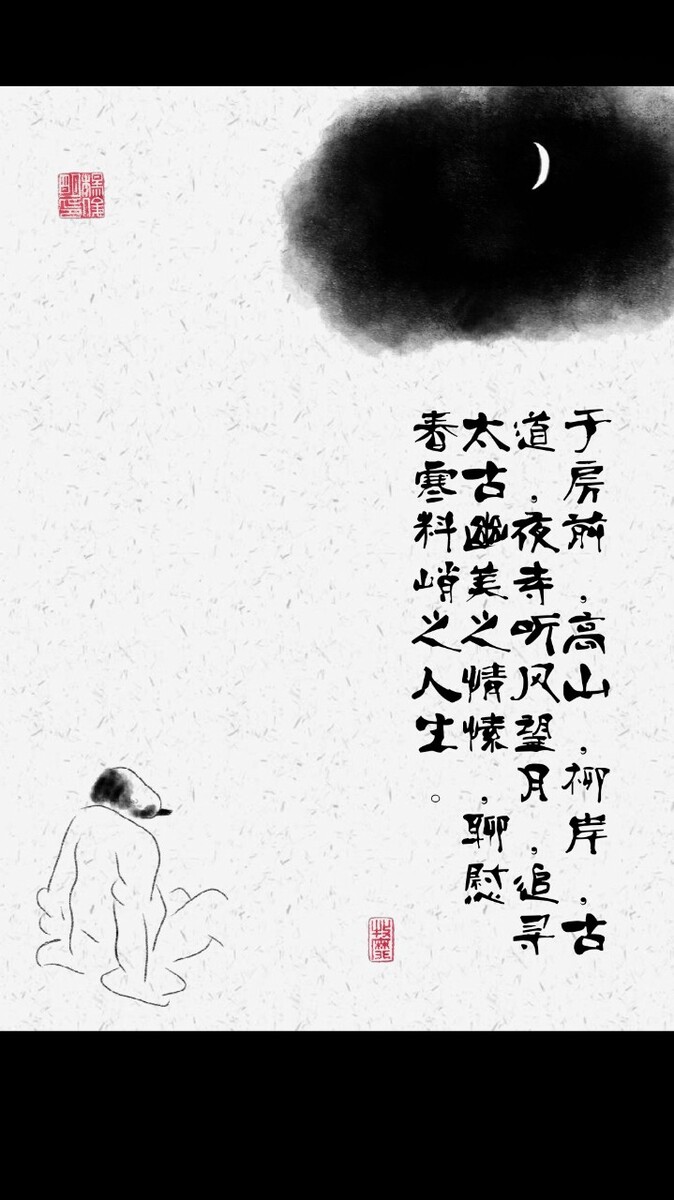 于房前，高山，柳岸，古
道，夜寺听风望月，追寻
太古幽美之情愫，聊慰
春寒料峭之人生。